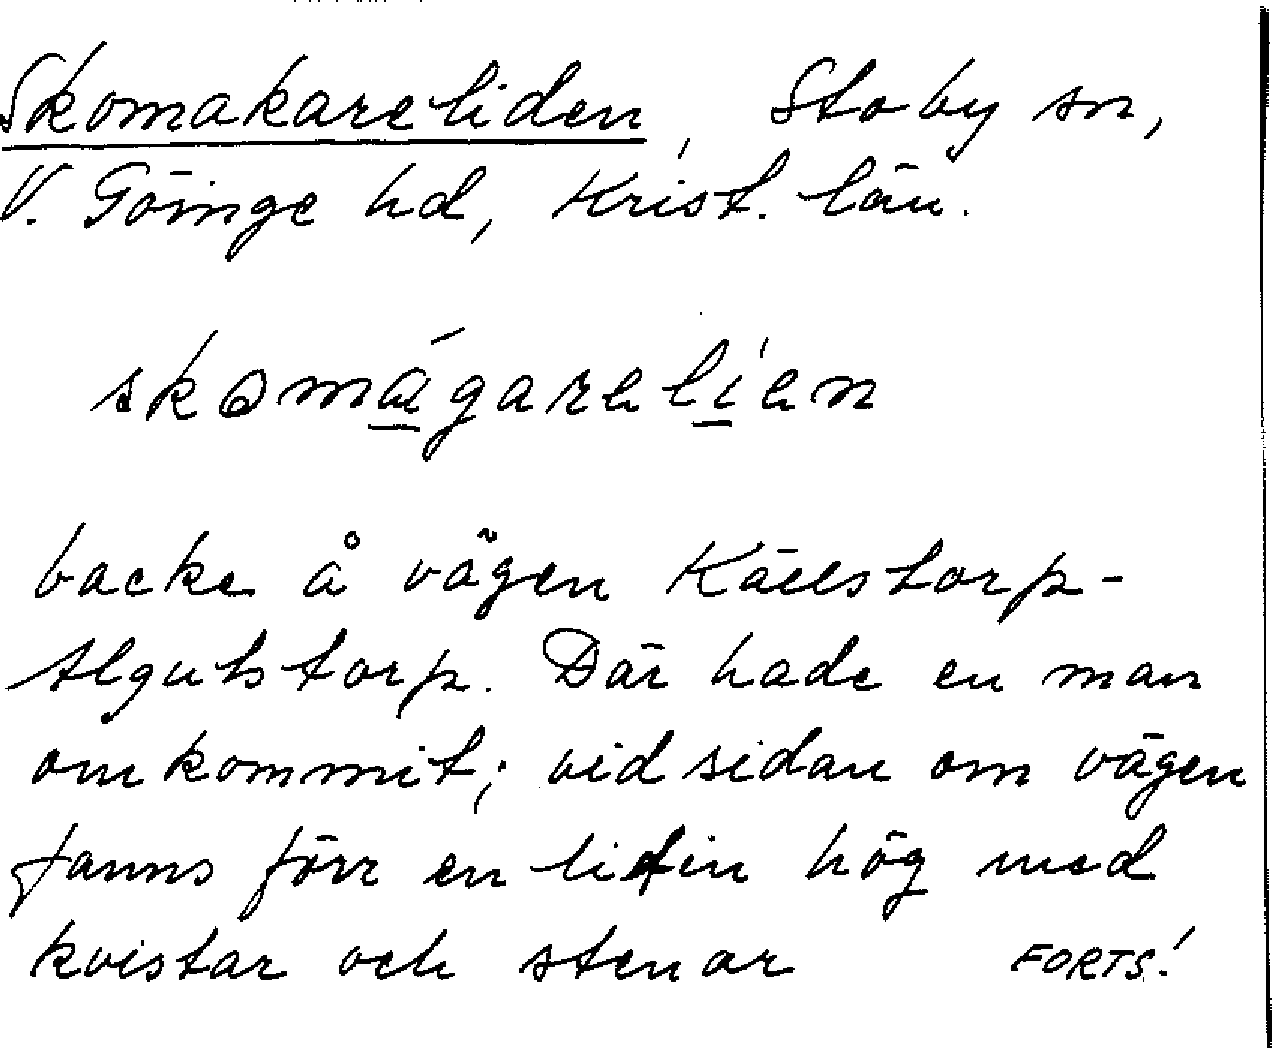 Skomakareliden, Stoby sn,
V. Göinge hd, Krist. län.
skomágarelíen
backe å vägen Källstorp-
Algutstorp. Där hade en man
omkommit; vid sidan om vägen
fanns förr en liten hög med
kvistar och stenar FORTS!